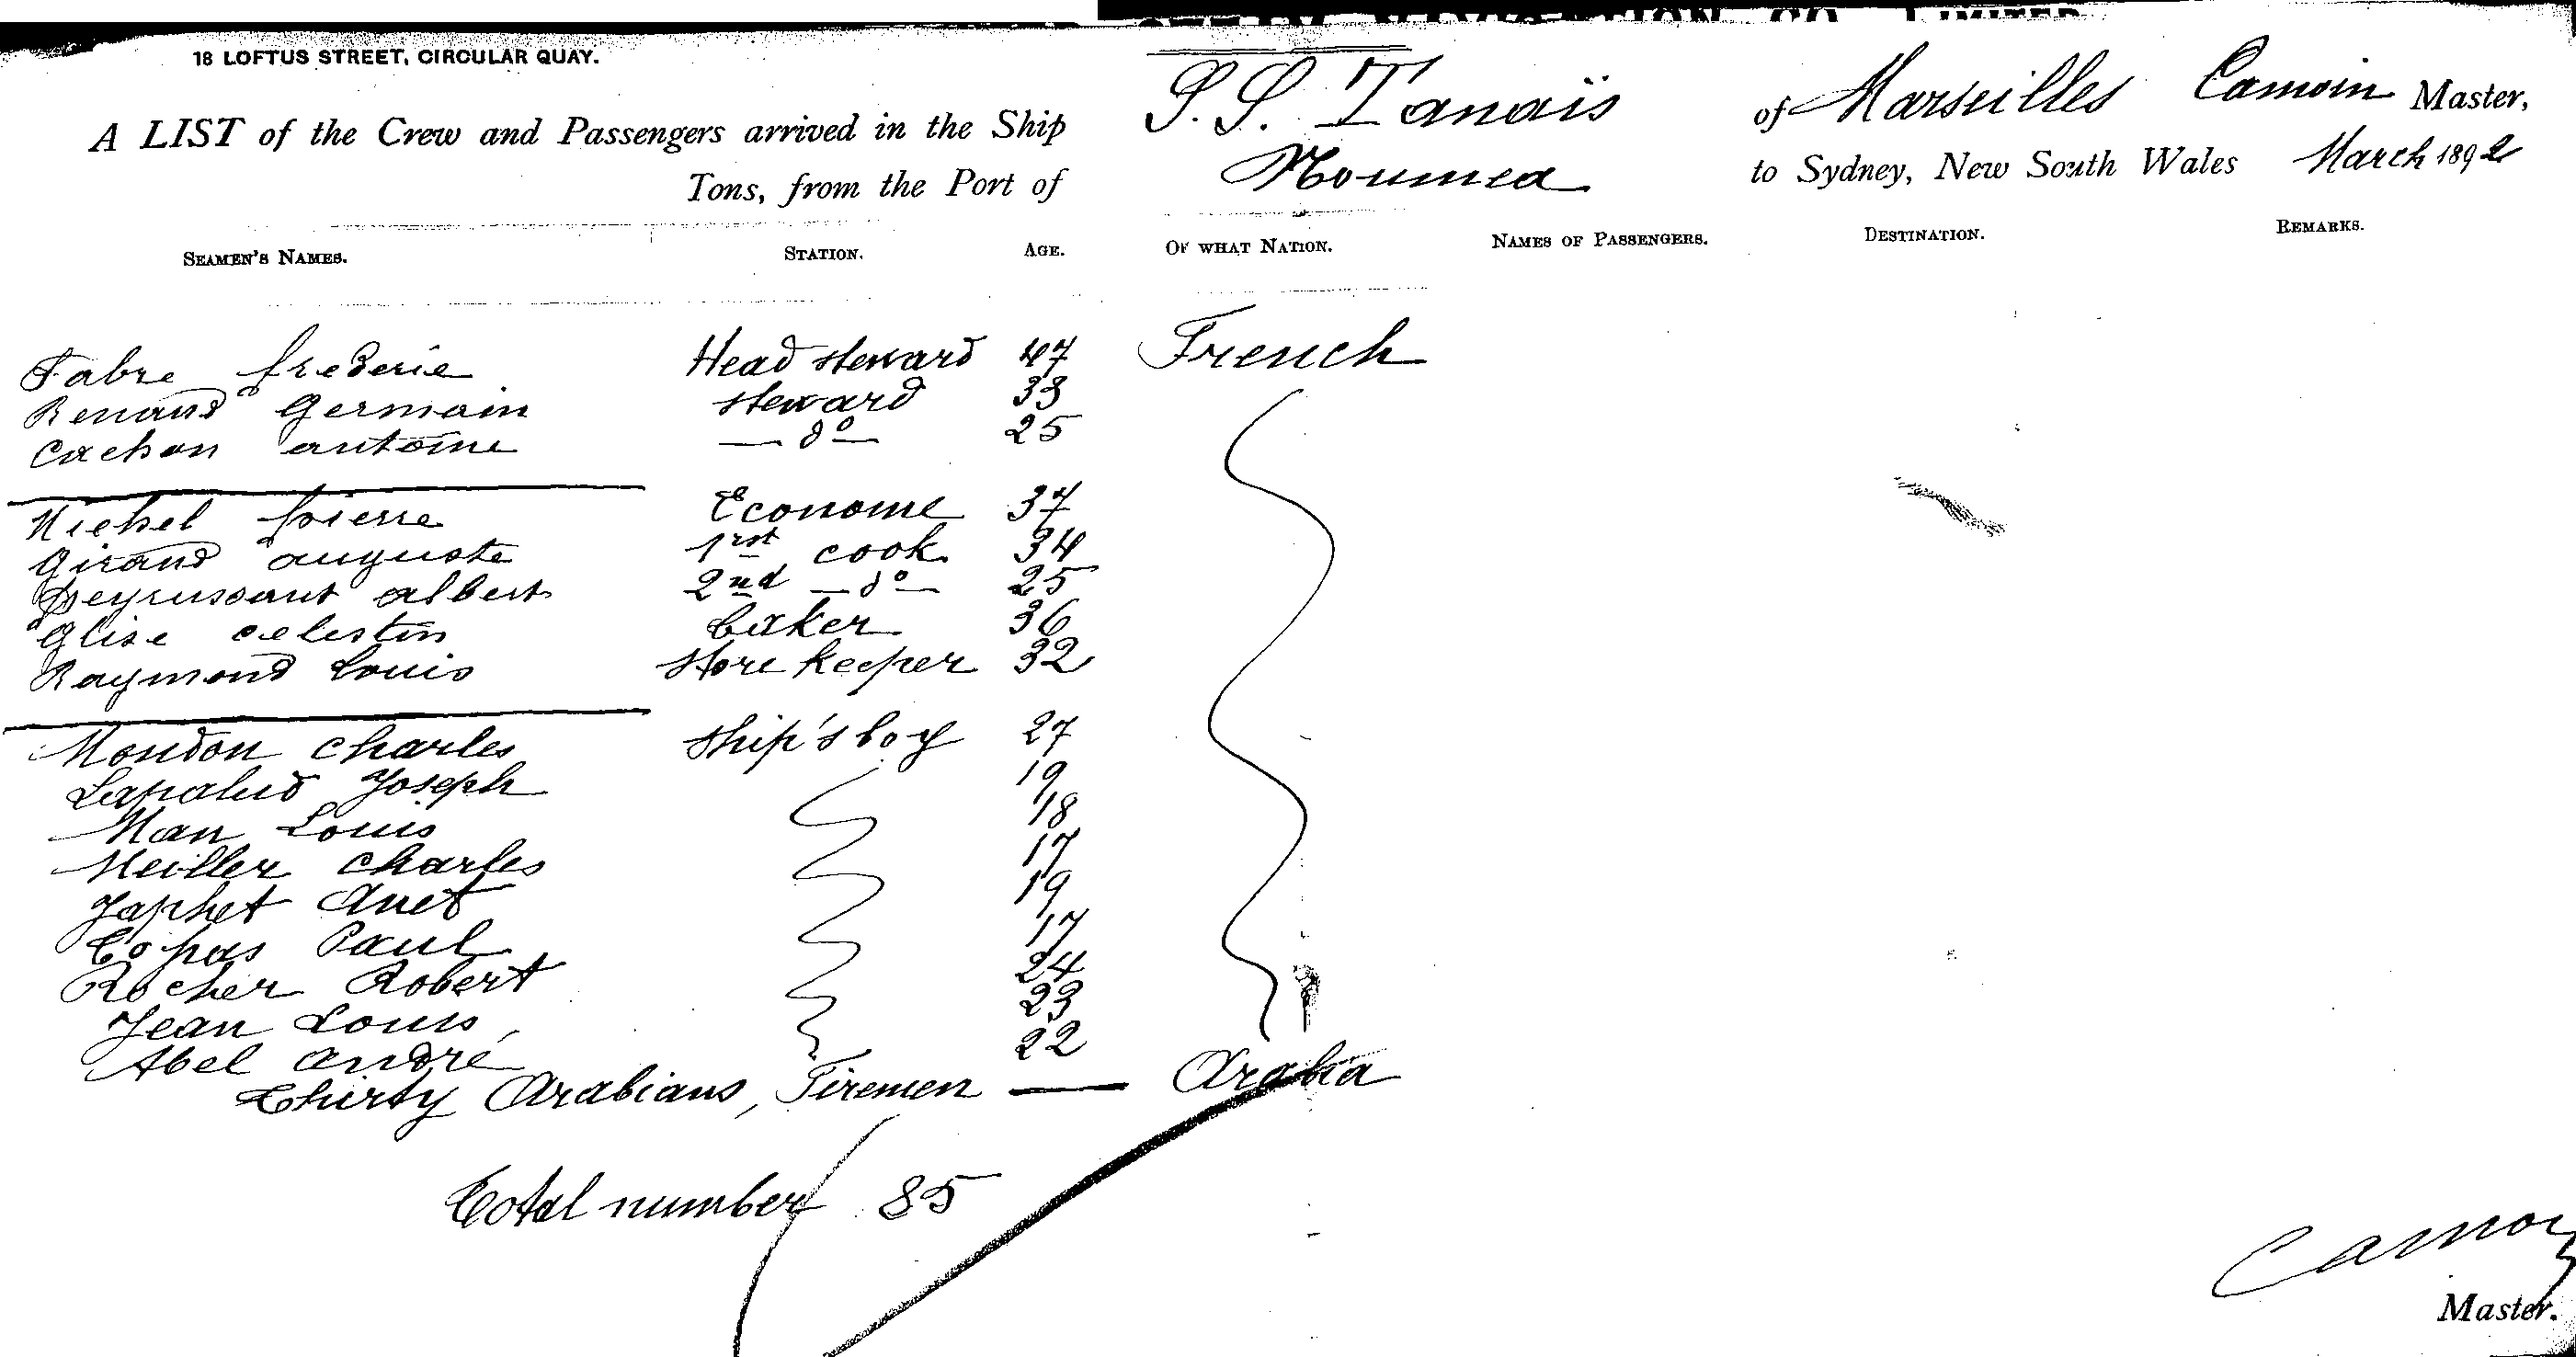 18 LOFTUS STREET, CIRCULAR QUAY.
A LIST of the Crew and Passengers arrived in the Ship S.S. Tanaïs of Marseilles Camoin Master,
Tons, from the Port of Noumea to Sydney, New South Wales March 1892
SEAMEN'S NAMES. STATION. AGE. OF WHAT NATION. NAMES OF PASSENGERS. DESTINATION. REMARKS.
Fabre frederic Head steward 47 French
Renaud Germain steward 33
Cachon antoine — do — 25
Michel pierre Econome 37
Giraud auguste 1rst cook 34
Peyrussant albert 2nd — do — 25
Glise celestin baker 36
Raymond Louis store keeper 32
Mondon charles ship's boy 27
Lapalud Joseph 19
Man Louis 18
Meiller charles 17
Japhet Anet 19
Copas Paul 17
Rocher Robert 24
Jean Louis 23
Abel andré 22
Thirty Arabians, Firemen — Arabia
Total number 85
Camoin
Master.